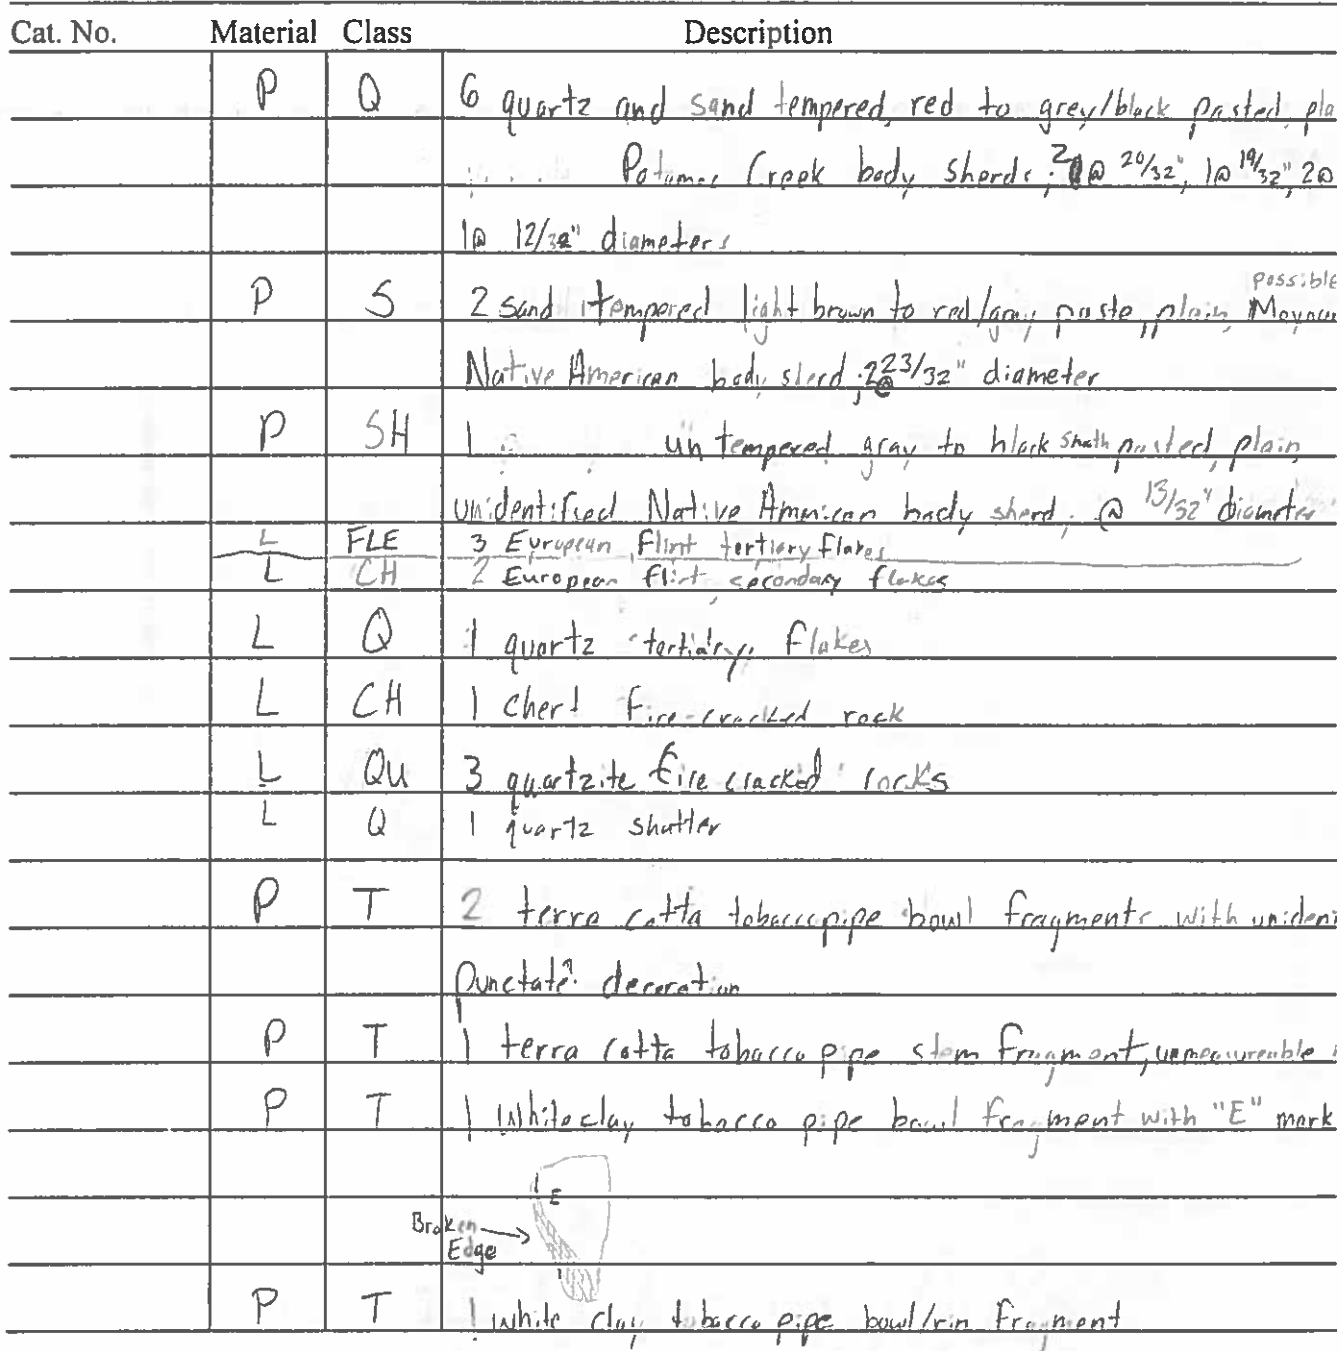 Cat. No. Material Class Description
P Q 6 quartz and sand tempered, red to grey/black pasted, pla
Potomac Creek body sherds; 2 @ 20/32", 1@ 19/32" 2@
1@ 12/32" diameters
possible
P S 2 sand tempered light brown to red/gray paste, plain,
Native American body sherd; 2@ 23/32" diameter
P SH 1 untempered gray to black pasted, plain,
unidentified Native American body sherd; @ 13/32" diameter
L FLE 3 European Flint tertiary flakes
L CH 2 European flint secondary flakes
L Q 1 quartz tertiary flakes
L CH 1 chert fire-cracked rock
L QU 3 quartzite fire cracked rocks
L Q 1 quartz shatter
P T 2 terra cotta tobacco pipe bowl fragments with unideni
punctate? decoration
P T 1 terra cotta tobacco pipe stem fragment, unmeasureable
P T 1 white clay tobacco pipe bowl fragment with "E" mark
E
Broken
Edge
P T 1 white clay tobacco pipe bowl/rim fragment